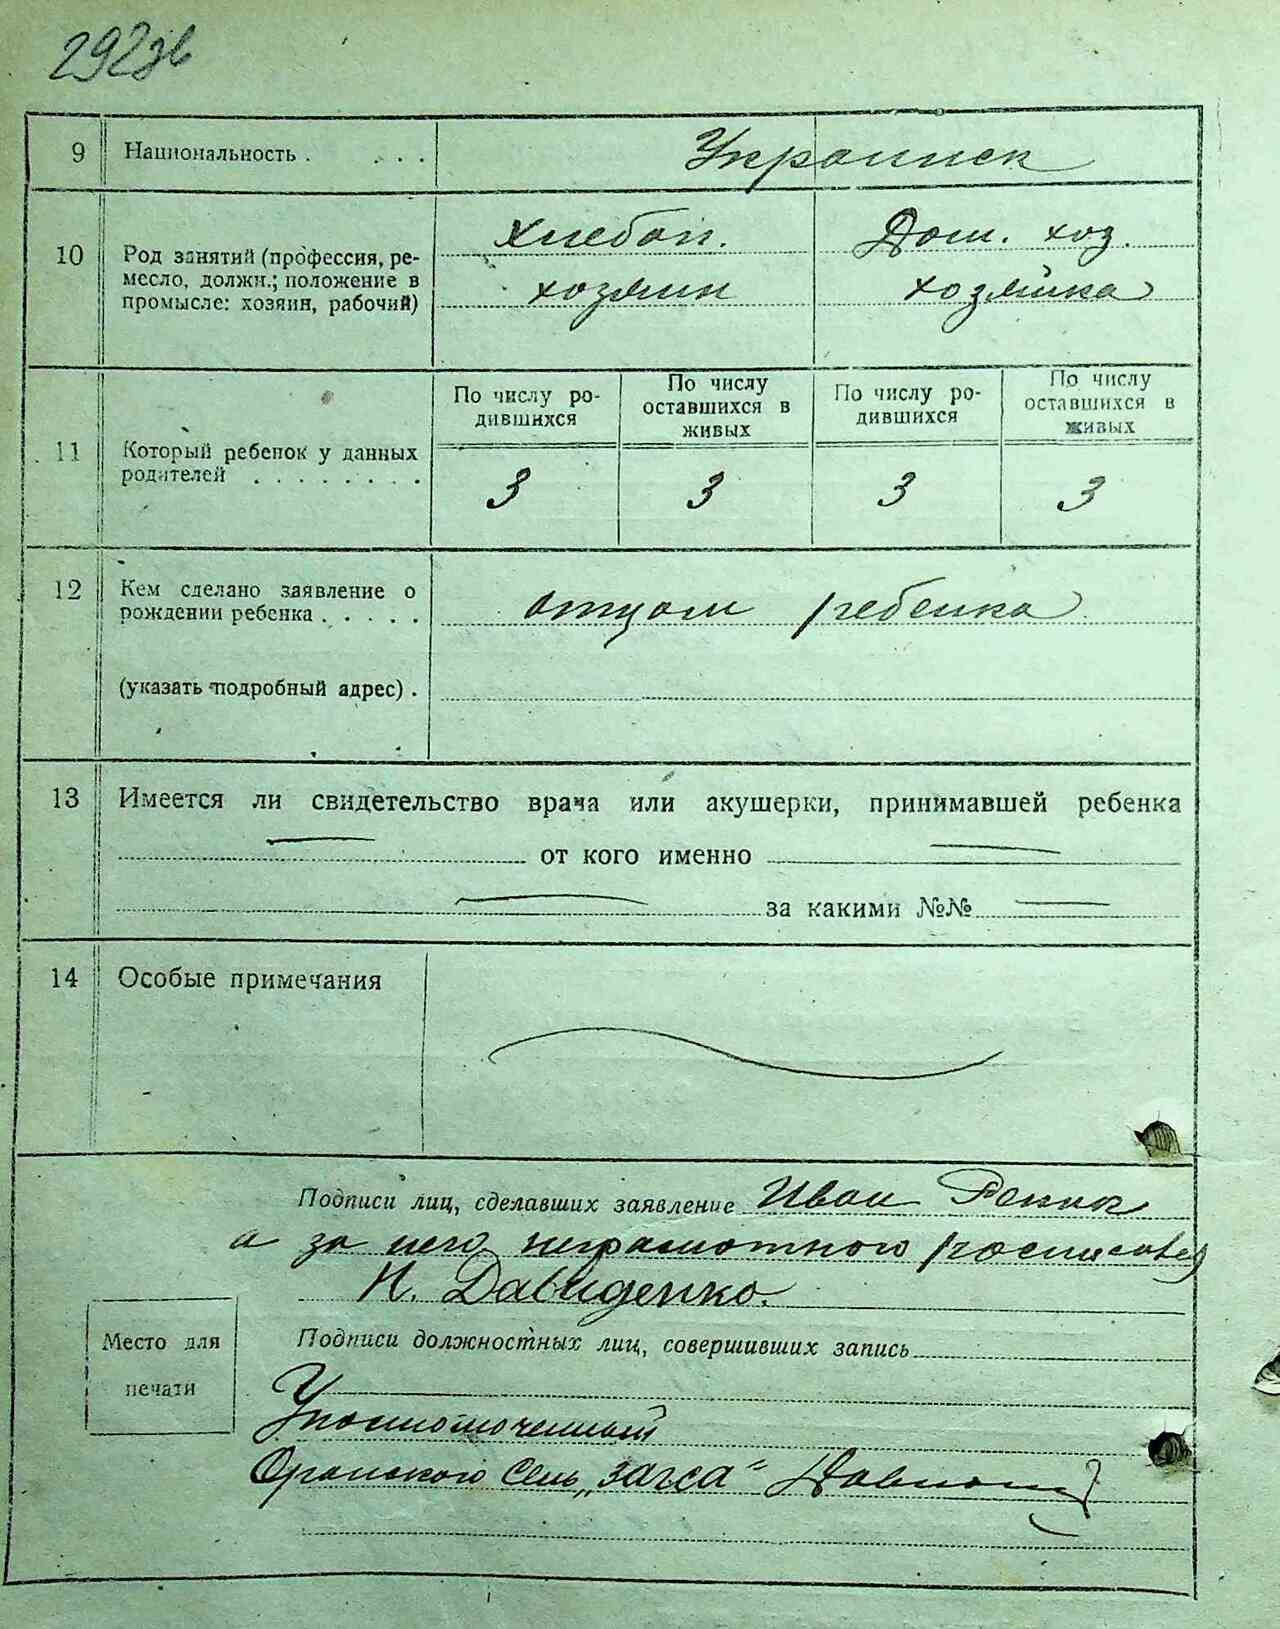 292зв
9 Национальность . . . . Украинск
10 Род занятий (профессия, ре-
месло, должн.; положение в
промысле: хозяин, рабочий)
Хлебоп. Дом. хоз.
хозяин хозяйка
По числу ро-
дившихся
По числу
оставшихся в
живых
По числу ро-
дившихся
По числу
оставшихся в
живых
11 Который ребенок у данных
родителей . . . . . . . .
3 3 3 3
12 Кем сделано заявление о
рождении ребенка . . . . .
отцом ребенка
(указать подробный адрес) .
13 Имеется ли свидетельство врача или акушерки, принимавшей ребенка
от кого именно
за какими №№
14 Особые примечания
Подписи лиц, сделавших заявление Иван
а за него неграмотного росписався
И. Давиденко.
Место для
печати
Подписи должностных лиц, совершивших запись
Уполномоченный
Оранского Сель „Загса"